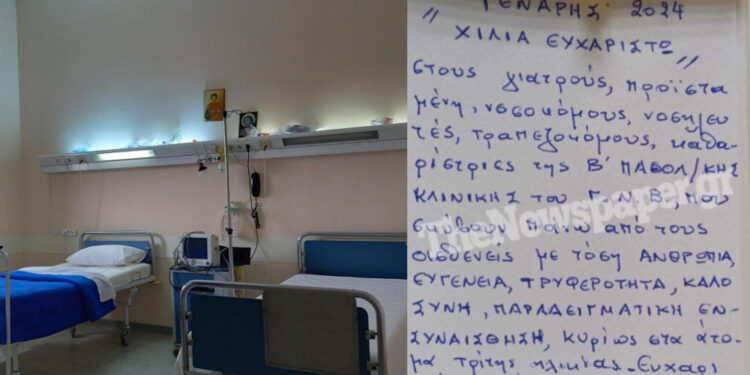 ΓΕΝΑΡΗΣ 2024
" ΧΙΛΙΑ ΕΥΧΑΡΙΣΤΩ "
στους γιατρούς, προϊστα
μένη, νοσοκόμους, νοσηλευ
τές, τραπεζοκόμους, καθα-
ρίστριες της Β' ΠΑΘΟΛ/ΚΗΣ
ΚΛΙΝΙΚΗΣ του Γ.Ν.Β, που
σκύβουν πάνω από τους
ασθενείς με τόση ΑΝΘΡΩΠΙΑ,
ΕΥΓΕΝΕΙΑ, ΤΡΥΦΕΡΟΤΗΤΑ, ΚΑΛΟ
ΣΥΝΗ, ΠΑΡΑΔΕΙΓΜΑΤΙΚΗ ΕΝ-
ΣΥΝΑΙΣΘΗΣΗ, κυρίως στα άτο-
μα τρίτης ηλικίας. Ευχαρι
TheNewspaper.gr